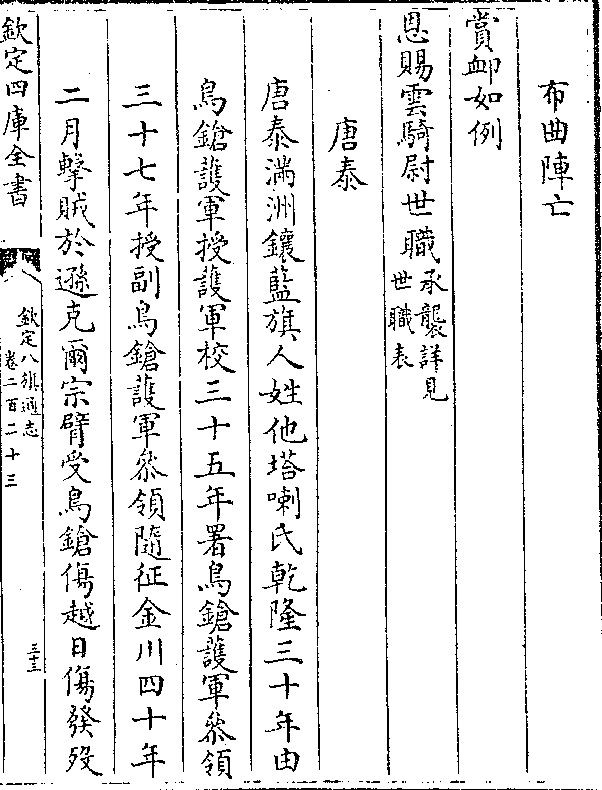 布曲陣亡
賞䘏如例
恩賜雲騎尉世職承襲詳見
世職表
唐泰
唐泰滿洲鑲藍旗人姓他塔喇氏乾隆三十年由
鳥鎗護軍授護軍校三十五年署鳥鎗護軍叅領
三十七年授副鳥鎗護軍叅領隨征金川四十年
二月擊賊於遜克爾宗臂受鳥鎗傷越日傷發歿
欽定四庫全書
欽定八旗通志
卷二百二十三
三十三